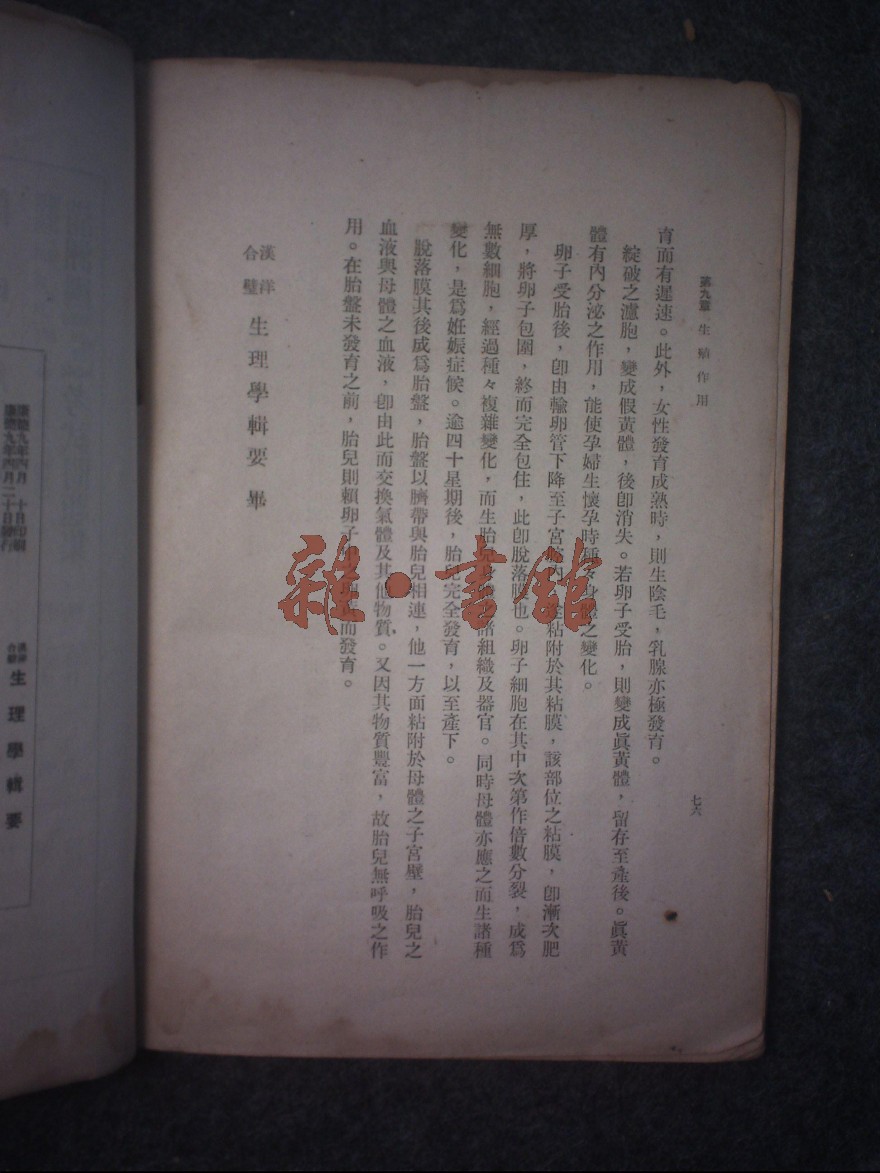 第九章 生殖作用
七六
育而有遲速。此外，女性發育成熟時，則生陰毛，乳腺亦極發育。
綻破之濾胞，變成假黃體，後卽消失。若卵子受胎，則變成眞黃體，留存至產後。眞黃
體有內分泌之作用，能使孕婦生懷孕時種々身體之變化。
卵子受胎後，卽由輸卵管下降至子宮腔內，粘附於其粘膜，該部位之粘膜，卽漸次肥
厚，將卵子包圍，終而完全包住，此卽脫落膜也。卵子細胞在其中次第作倍數分裂，成爲
無數細胞，經過種々複雜變化，而生胎兒諸組織及器官。同時母體亦應之而生諸種
變化，是爲姙娠症候。逾四十星期後，胎兒完全發育，以至產下。
脫落膜其後成爲胎盤，胎盤以臍帶與胎兒相連，他一方面粘附於母體之子宮壁，胎兒之
血液與母體之血液，卽由此而交換氣體及其他物質。又因其物質豐富，故胎兒無呼吸之作
用。在胎盤未發育之前，胎兒則賴卵子而發育。
漢洋合璧 生理學輯要 畢
康德九年四月 十日印刷
康德九年四月二十日發行
漢洋合璧 生理學輯要
雜·書館